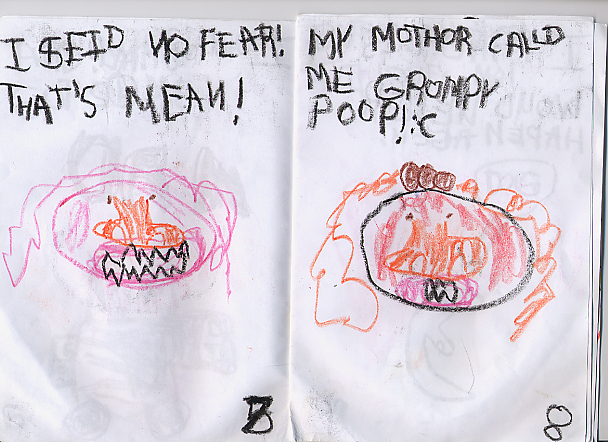 I SEID NO FEAR!
THAT'S MEAN!
MY MOTHOR CALLD
ME GROMPY
POOP! :C
8